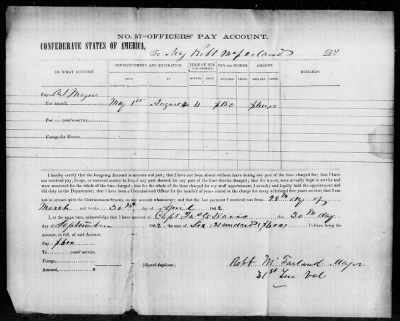 NO. 57—OFFICERS' PAY ACCOUNT.
CONFEDERATE STATES OF AMERICA,
To Maj Robt McFarland Dr
ON WHAT ACCOUNT. COMMENCEMENT AND EXPIRATION. PAY PER MONTH. AMOUNT. REMARKS.
Pay Major
For myself, May 1st August
For years' service.
Forage for Horses,
I hereby certify that the foregoing Account is accurate and just; that I have not been absent without leave during any part of the time charged for; that I have
not received pay, forage, or received money in lieu of any part thereof, for any part of the time therein charged; that the horses were actually kept in service and
were mustered for the whole of the time charged; that for the whole of the time charged for my staff appointment, I actually and legally held the appointment and
did duty in the Department; that I have been a Commissioned Officer for the number of years stated in the charge for every additional five years' service; that I am
not in arrears with the CONFEDERATE STATES, on any account whatsoever; and that the last payment I received was from 28th day of
March to 30th April 1862
I, at the same time, acknowledge that I have received of Capt. this 20th day
of September 2, the sum of Six Hundred Dollars, being the
amount, in full, of said Account.
Pay,
To years' service,
Forage,
Amount, $ (Signed duplicate)
Robt McFarland Major
31st Ten Vol